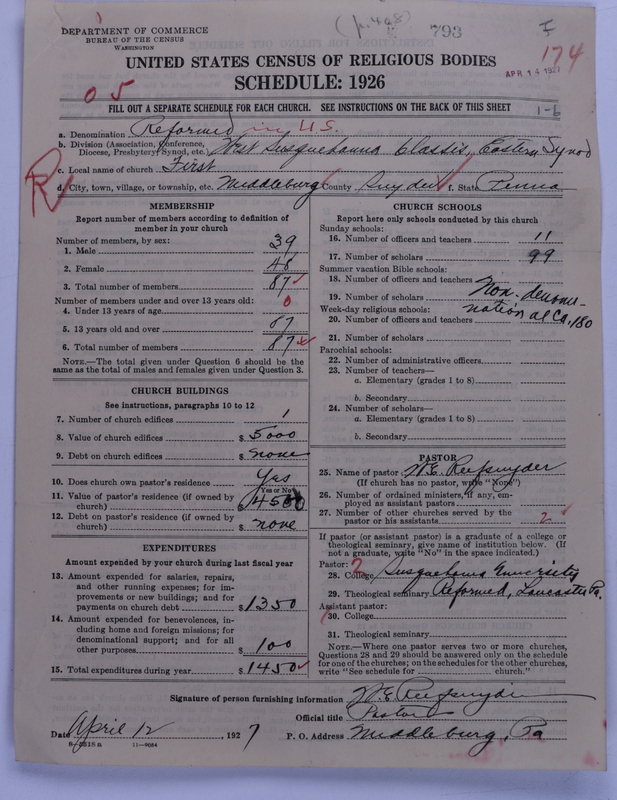 (p.408)
793
I
DEPARTMENT OF COMMERCE
BUREAU OF THE CENSUS
WASHINGTON
174
APR 14 1927
UNITED STATES CENSUS OF RELIGIOUS BODIES
SCHEDULE: 1926
05
FILL OUT A SEPARATE SCHEDULE FOR EACH CHURCH. SEE INSTRUCTIONS ON THE BACK OF THIS SHEET
1-6
a. Denomination Reformed in U.S.
b. Division (Association, Conference, Diocese, Presbytery, Synod, etc.) West Susquehanna Classis, Eastern Synod
c. Local name of church First
R
d. City, town, village, or township, etc. Middleburg County Snyder f. State Penna
MEMBERSHIP
Report number of members according to definition of
member in your church
Number of members, by sex:
1. Male 39
2. Female 48
3. Total number of members 87
Number of members under and over 13 years old:
4. Under 13 years of age 0
5. 13 years old and over 87
6. Total number of members 87
NOTE.—The total given under Question 6 should be
same as the total of males and females given under Question 3.
CHURCH BUILDINGS
See instructions, paragraphs 10 to 12
7. Number of church edifices 1
8. Value of church edifices $ 5000
9. Debt on church edifices $ none
10. Does church own pastor's residence Yes
(Yes or No)
11. Value of pastor's residence (if owned by
church) $ 4500
12. Debt on pastor's residence (if owned by
church) $ none
EXPENDITURES
Amount expended by your church during last fiscal year
13. Amount expended for salaries, repairs,
and other running expenses; for im-
provements or new buildings; and for
payments on church debt $ 1350
14. Amount expended for benevolences, in-
cluding home and foreign missions; for
denominational support; and for all
other purposes $ 100
15. Total expenditures during year $ 1450
CHURCH SCHOOLS
Report here only schools conducted by this church
Sunday schools:
16. Number of officers and teachers 11
17. Number of scholars 99
Summer vacation Bible schools:
18. Number of officers and teachers Non-denomi-
19. Number of scholars national Ca. 180
Week-day religious schools:
20. Number of officers and teachers
21. Number of scholars
Parochial schools:
22. Number of administrative officers
23. Number of teachers—
a. Elementary (grades 1 to 8)
b. Secondary
24. Number of scholars—
a. Elementary (grades 1 to 8)
b. Secondary
PASTOR
25. Name of pastor W. E. Reifsnyder
(If church has no pastor, write "None")
26. Number of ordained ministers, if any, em-
ployed as assistant pastors
27. Number of other churches served by the
pastor or his assistants 2
If pastor (or assistant pastor) is a graduate of a college or
theological seminary, give name of institution below. (If
not a graduate, write "No" in the space indicated.)
Pastor: 2
28. College Susquehanna University
29. Theological seminary Reformed, Lancaster Pa.
Assistant pastor:
30. College
31. Theological seminary
NOTE.—Where one pastor serves two or more churches,
Questions 28 and 29 should be answered only on the schedule
for one of the churches; on the schedules for the other churches,
write "See schedule for church."
Signature of person furnishing information W. E. Reifsnyder
Official title Pastor
Date April 12, 1927
P. O. Address Middleburg, Pa
8-5218 a 11-9084